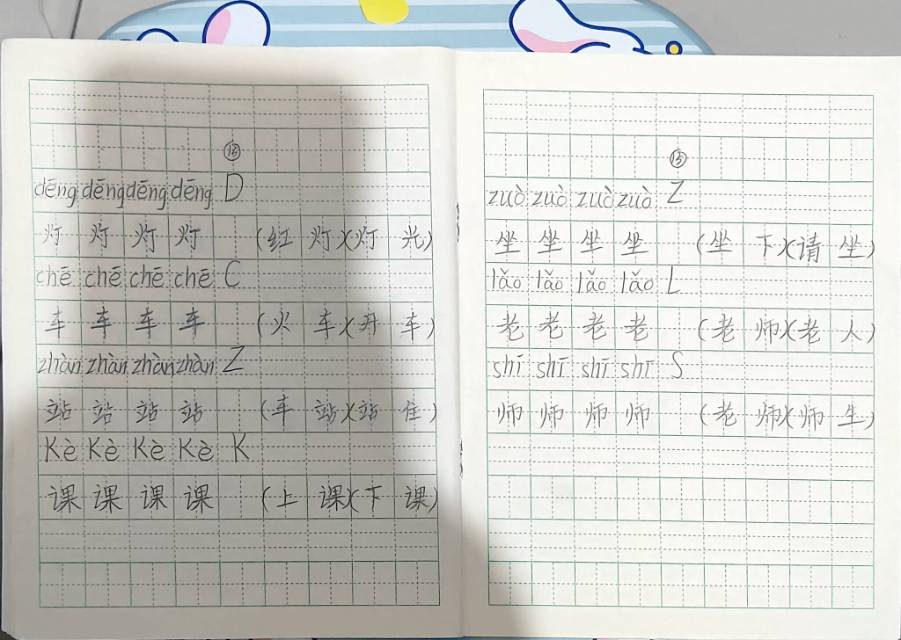 ⑮
dēng dēng dēng dēng D
灯 灯 灯 灯 (红 灯)(灯 光)
chē chē chē chē C
车 车 车 车 (火 车)(开 车)
zhàn zhàn zhàn zhàn Z
站 站 站 站 (车 站)(站 住)
Kè Kè Kè Kè K
课 课 课 课 (上 课)(下 课)
⑮
zuò zuò zuò zuò Z
坐 坐 坐 坐 (坐 下)(请 坐)
lǎo lǎo lǎo lǎo L
老 老 老 老 (老 师)(老 人)
shī shī shī shī S
师 师 师 师 (老 师)(师 生)